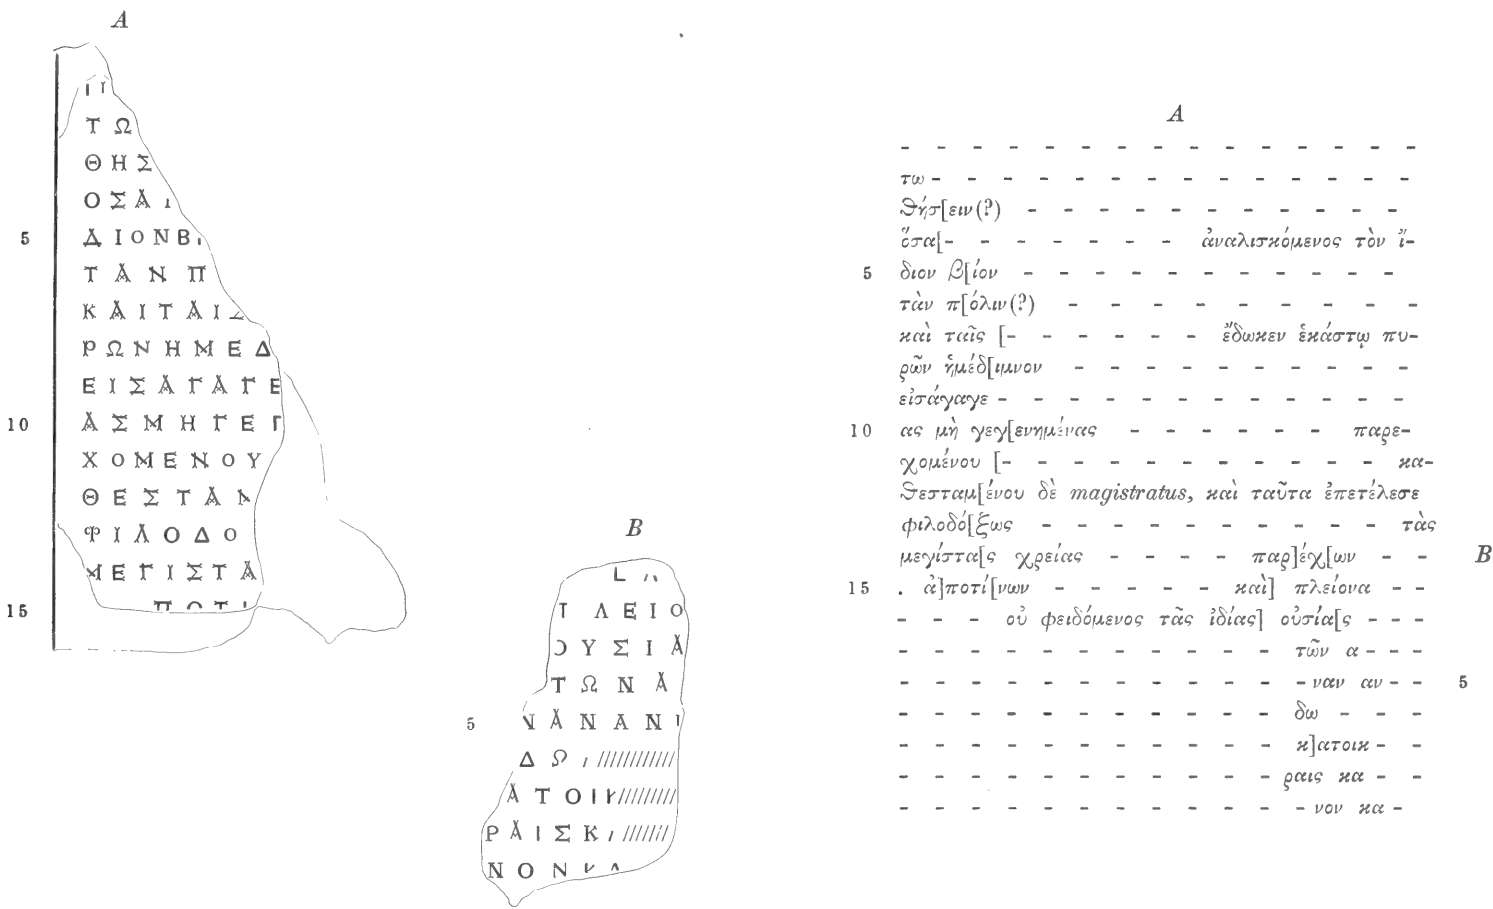 A
ΤΩ
ΘΗΣ
ΟΣΑ
5 ΔΙΟΝΒ
ΤΑΝΠ
ΚΑΙΤΑΙΣ
ΡΩΝΗΜΕΔ
ΕΙΣΑΓΑΓΕ
10 ΑΣΜΗΓΕΓ
ΧΟΜΕΝΟΥ
ΘΕΣΤΑΜ
ΦΙΛΟΔΟ
ΜΕΓΙΣΤΑ
15 ΠΟΤΙ
B
ΠΛΕΙΟ
ΟΥΣΙΑ
ΤΩΝΑ
5 ΝΑΝΑΝ
ΔΩ
ΑΤΟΙΚ
ΡΑΙΣΚ
ΝΟΝΚΑ
A
- - - - - - - - - - - - - - -
τω - - - - - - - - - - - - - -
θήσ[ειν(?) - - - - - - - - - - -
ὅσα[- - - - - - - ἀναλισκόμενος τὸν ἴ-
5 διον β[ίον - - - - - - - - - - - -
τὰν π[όλιν(?) - - - - - - - - - -
καὶ ταῖς [- - - - - - ἔδωκεν ἑκάστῳ πυ-
ρῶν ἡμέδ[ιμνον - - - - - - - - - -
εἰσάγαγε - - - - - - - - - - - -
10 ας μὴ γεγ[ενημένας - - - - - - παρε-
χομένου [- - - - - - - - - - - κα-
θεσταμ[ένου δὲ magistratus, καὶ ταῦτα ἐπετέλεσε
φιλοδό[ξως - - - - - - - - - - τὰς
μεγίστα[ς χρείας - - - - παρ]έχ[ων - - B
15 . ἀ]ποτί[νων - - - - - καὶ] πλείονα - -
- - - οὐ φειδόμενος τᾶς ἰδίας] οὐσία[ς - - -
- - - - - - - - - - - τῶν α - - -
- - - - - - - - - - - - ναν αν - - 5
- - - - - - - - - - - δω - - -
- - - - - - - - - - - κ]ατοικ - -
- - - - - - - - - - - ραις κα - -
- - - - - - - - - - - - νον κα -